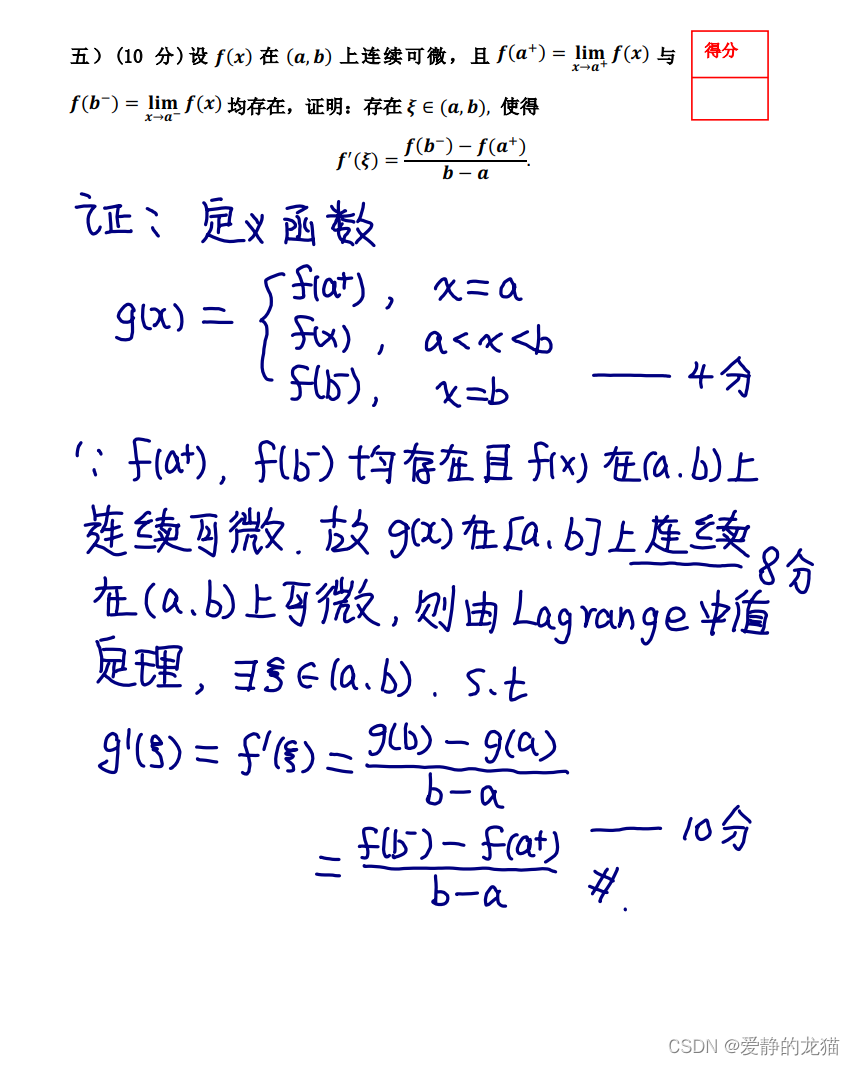 五）(10 分) 设 f(x) 在 (a, b) 上连续可微，且 f(a⁺) = lim_{x→a⁺} f(x) 与
得分
f(b⁻) = lim_{x→a⁻} f(x) 均存在，证明：存在 ξ ∈ (a, b), 使得
f′(ξ) = (f(b⁻) − f(a⁺))/(b − a).
证: 定义函数
g(x) = { f(a⁺), x = a
f(x), a < x < b
f(b⁻), x = b —— 4分
∵ f(a⁺), f(b⁻) 均存在且 f(x) 在(a.b)上
连续可微. 故 g(x) 在[a.b]上连续 8分
在(a.b)上可微, 则由 Lagrange 中值
定理, ∃ξ∈(a.b). s.t
g′(ξ) = f′(ξ) = (g(b) − g(a))/(b − a)
= (f(b⁻) − f(a⁺))/(b − a) —— 10分
#.
CSDN @爱静的龙猫